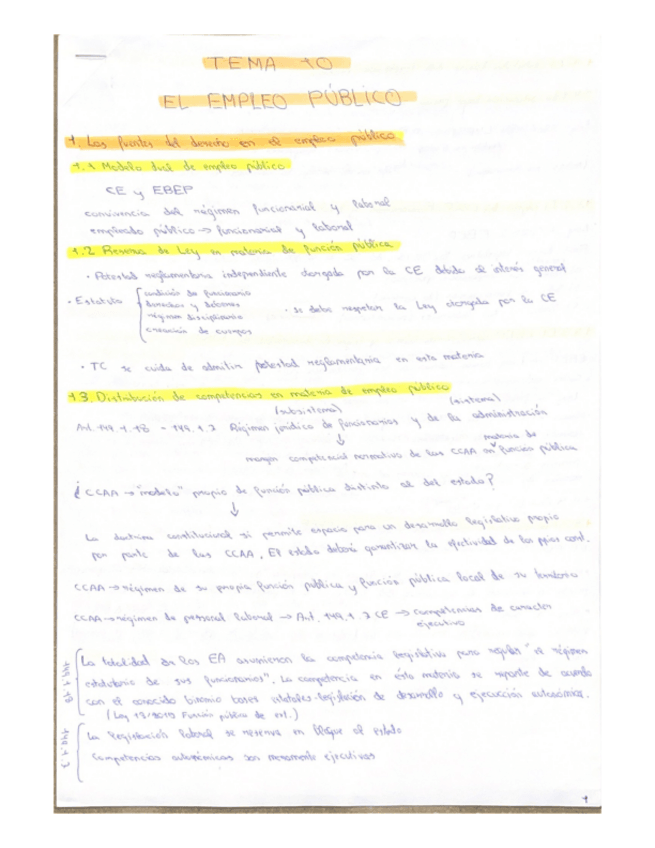 TEMA 10
EL EMPLEO PÚBLICO
1. Las fuentes del derecho en el empleo público
1.1 Modelo dual de empleo público
CE y EBEP
convivencia del régimen funcionarial y laboral
empleado público → funcionarial y laboral
1.2 Reserva de Ley en materia de función pública
· Potestad reglamentaria independiente otorgada por la CE debido al interés general
· Estatuto { condición de funcionario
derechos y deberes
régimen disciplinario
creación de cuerpos
· se debe respetar la Ley otorgada por la CE
· TC se cuida de admitir potestad reglamentaria en esta materia
1.3. Distribución de competencias en materia de empleo público
(subsistema) (sistema)
Art. 149.1.18 - 149.1.7 Régimen jurídico de funcionarios y de la administración
↓
margen competencial normativo de las CCAA en materia de función pública
¿CCAA → "modelo" propio de función pública distinto al del estado?
↓
La doctrina constitucional si permite espacio para un desarrollo legislativo propio
por parte de las CCAA. El estado deberá garantizar la efectividad de los ppios const.
CCAA → régimen de su propia función pública y función pública local de su territorio
CCAA → régimen de personal laboral → Art. 149.1.7 CE → competencias de carácter
ejecutivo
149.1.18
La totalidad de los EA asumieron la competencia legislativa para regular "el régimen
estatutario de sus funcionarios". La competencia en esta materia se reparte de acuerdo
con el conocido binomio bases estatales-legislación de desarrollo y ejecución autonómica.
(Ley Función pública de )
149.1.7
La legislación laboral se reserva en bloque al estado
Competencias autonómicas son meramente ejecutivas
1